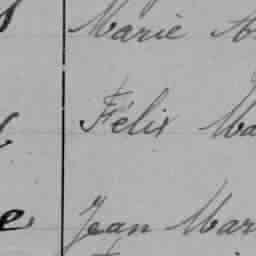 Marie
Félix Ma
Jean Mar